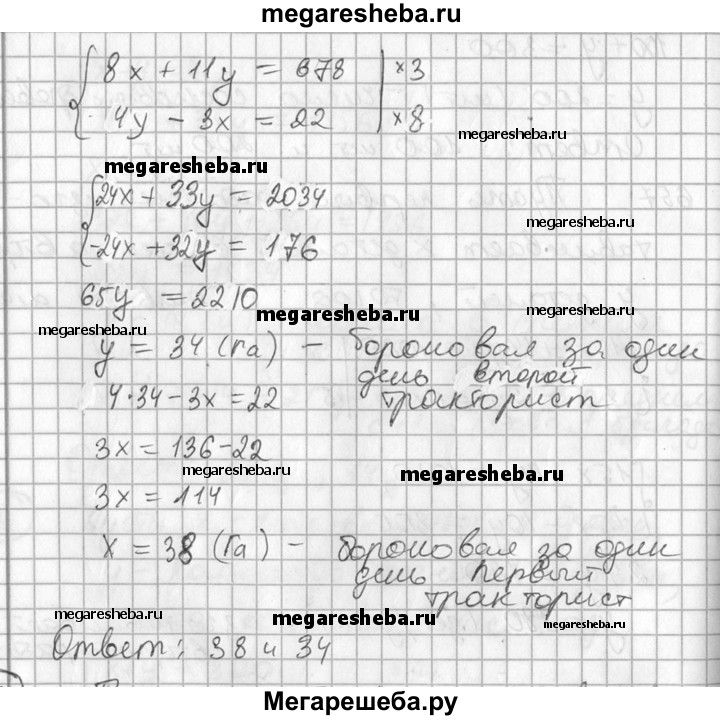 megaresheba.ru
8x + 11y = 678 | ×3
4y - 3x = 22 | ×8
megaresheba.ru
megaresheba.ru
24x + 33y = 2034
megaresheba.ru
-24x + 32y = 176
65y = 2210
megaresheba.ru
megaresheba.ru
megaresheba.ru
y = 34 (га) - бороновал за один
день второй
4·34 - 3x = 22 тракторист
3x = 136 - 22
megaresheba.ru
megaresheba.ru
3x = 114
x = 38 (га) - бороновал за один
день первый
тракторист
megaresheba.ru
megaresheba.ru
megaresheba.ru
Ответ: 38 и 34
Мегарешеба.ру